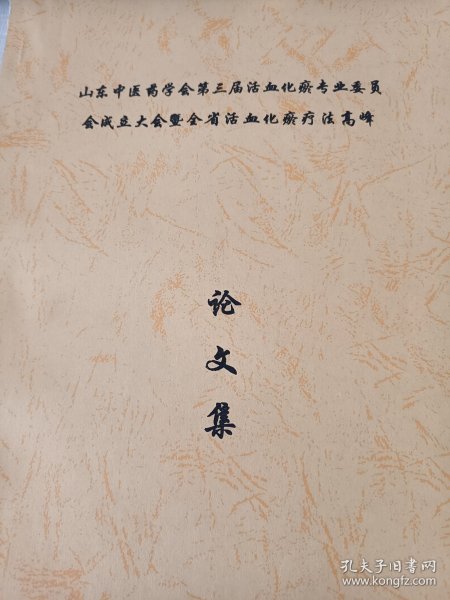 山东中医药学会第三届活血化瘀专业委员
会成立大会暨全省活血化瘀疗法高峰
论
文
集
孔夫子旧书网
www.kongfz.com